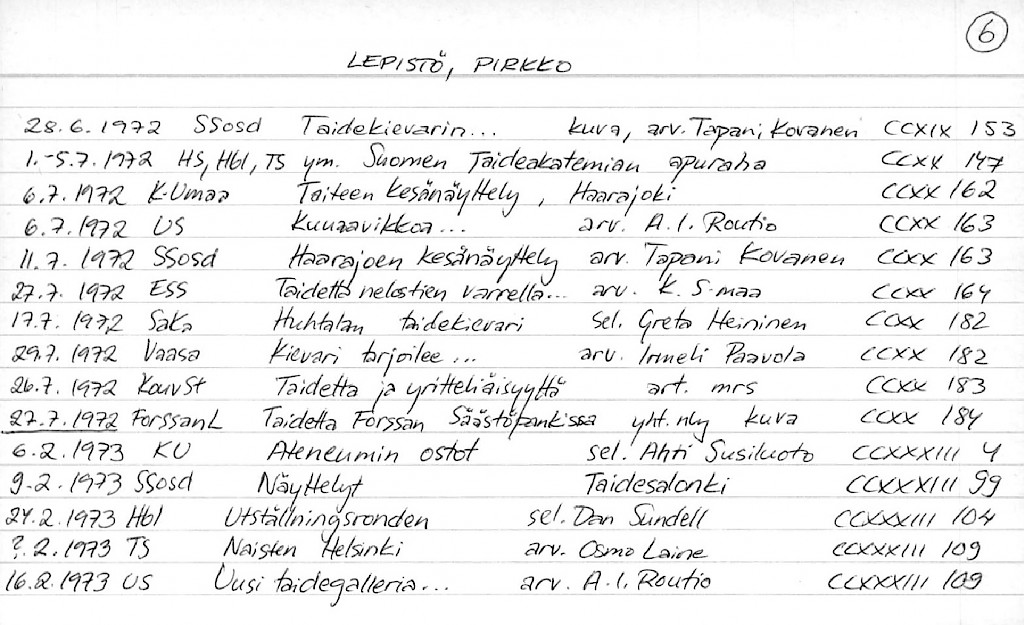 6
LEPISTÖ, PIRKKO
28.6.1972 SSosd Taidekievarin... kuva, arv. Tapani Kovanen CCXIX 153
1.-5.7.1972 HS, Hbl, TS ym. Suomen Taideakatemian apuraha CCXX 147
6.7.1972 K-Umaa Taiteen kesänäyttely, Haarajoki CCXX 162
6.7.1972 US Kuuaavikkoa... arv. A.I. Routio CCXX 163
11.7.1972 SSosd Haarajoen kesänäyttely arv. Tapani Kovanen CCXX 163
27.7.1972 ESS Taidetta nelostien varrella... arv. K. S-maa CCXX 164
17.7.1972 SaKa Huhtalan taidekievari sel. Greta Heininen CCXX 182
29.7.1972 Vaasa Kievari tarjoilee... arv. Irmeli Paavola CCXX 182
26.7.1972 KouvSt Taidetta ja yritteliäisyyttä art. mrs CCXX 183
27.7.1972 ForssanL Taidetta Forssan Säästöpankissa yht.nly kuva CCXX 184
6.2.1973 KU Ateneumin ostot sel. Ahti Susiluoto CCXXXIII 4
9.2.1973 SSosd Näyttelyt Taidesalonki CCXXXIII 99
24.2.1973 Hbl Utställningsronden sel. Dan Sundell CCXXXIII 104
?.2.1973 TS Naisten Helsinki arv. Osmo Laine CCXXXIII 109
16.2.1973 US Uusi taidegalleria... arv. A.I. Routio CCXXXIII 109